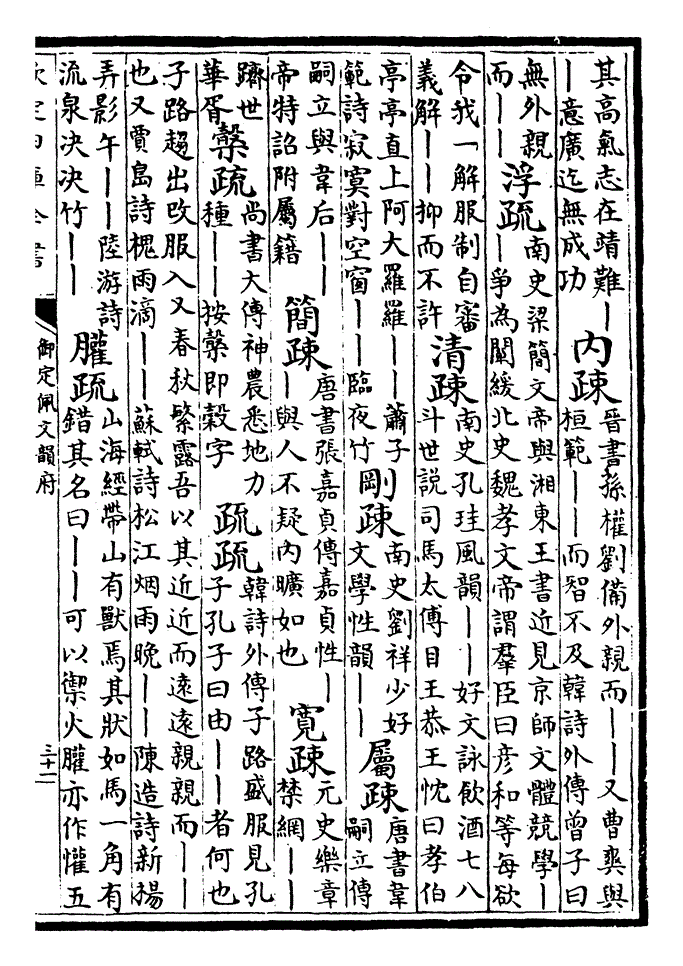 其高氣志在靖難丨
丨意廣迄無成功
內疎
晉書孫權劉備外親而丨丨又曹爽與
桓範丨丨而智不及韓詩外傳曾子曰
無外親
而丨丨
浮疏
南史梁簡文帝與湘東王書近見京師文體競學丨
丨爭為闡緩北史魏孝文帝謂羣臣曰彥和等每欲
令我一解服制自審
義解丨丨抑而不許
清疎
南史孔珪風韻丨丨好文詠飲酒七八
斗世説司馬太傅目王恭王忱曰孝伯
亭亭直上阿大羅羅丨丨蕭子
範詩寂寞對空窗丨丨臨夜竹
剛疎
南史劉祥少好
文學性韻丨丨
屬疎
唐書韋
嗣立傳
嗣立與韋后丨丨
帝特詔附屬籍
簡疎
唐書張嘉貞傳嘉貞性丨
丨與人不疑內曠如也
寬疎
元史樂章
禁網丨丨
躋世
華胥
檕疏
尚書大傳神農悉地力
種丨丨按檕即穀字
疏疏
韓詩外傳子路盛服見孔
子孔子曰由丨丨者何也
子路趨出改服入又春秋繁露吾以其近近而遠遠親親而丨丨
也又賈島詩槐雨滴丨丨蘇軾詩松江烟雨晚丨丨陳造詩新揚
弄影午丨丨陸游詩
流泉决决竹丨丨
䑏疏
山海經帶山有獸焉其狀如馬一角有
錯其名曰丨丨可以禦火䑏亦作懽五
欽定四庫全書
御定佩文韻府
三十二